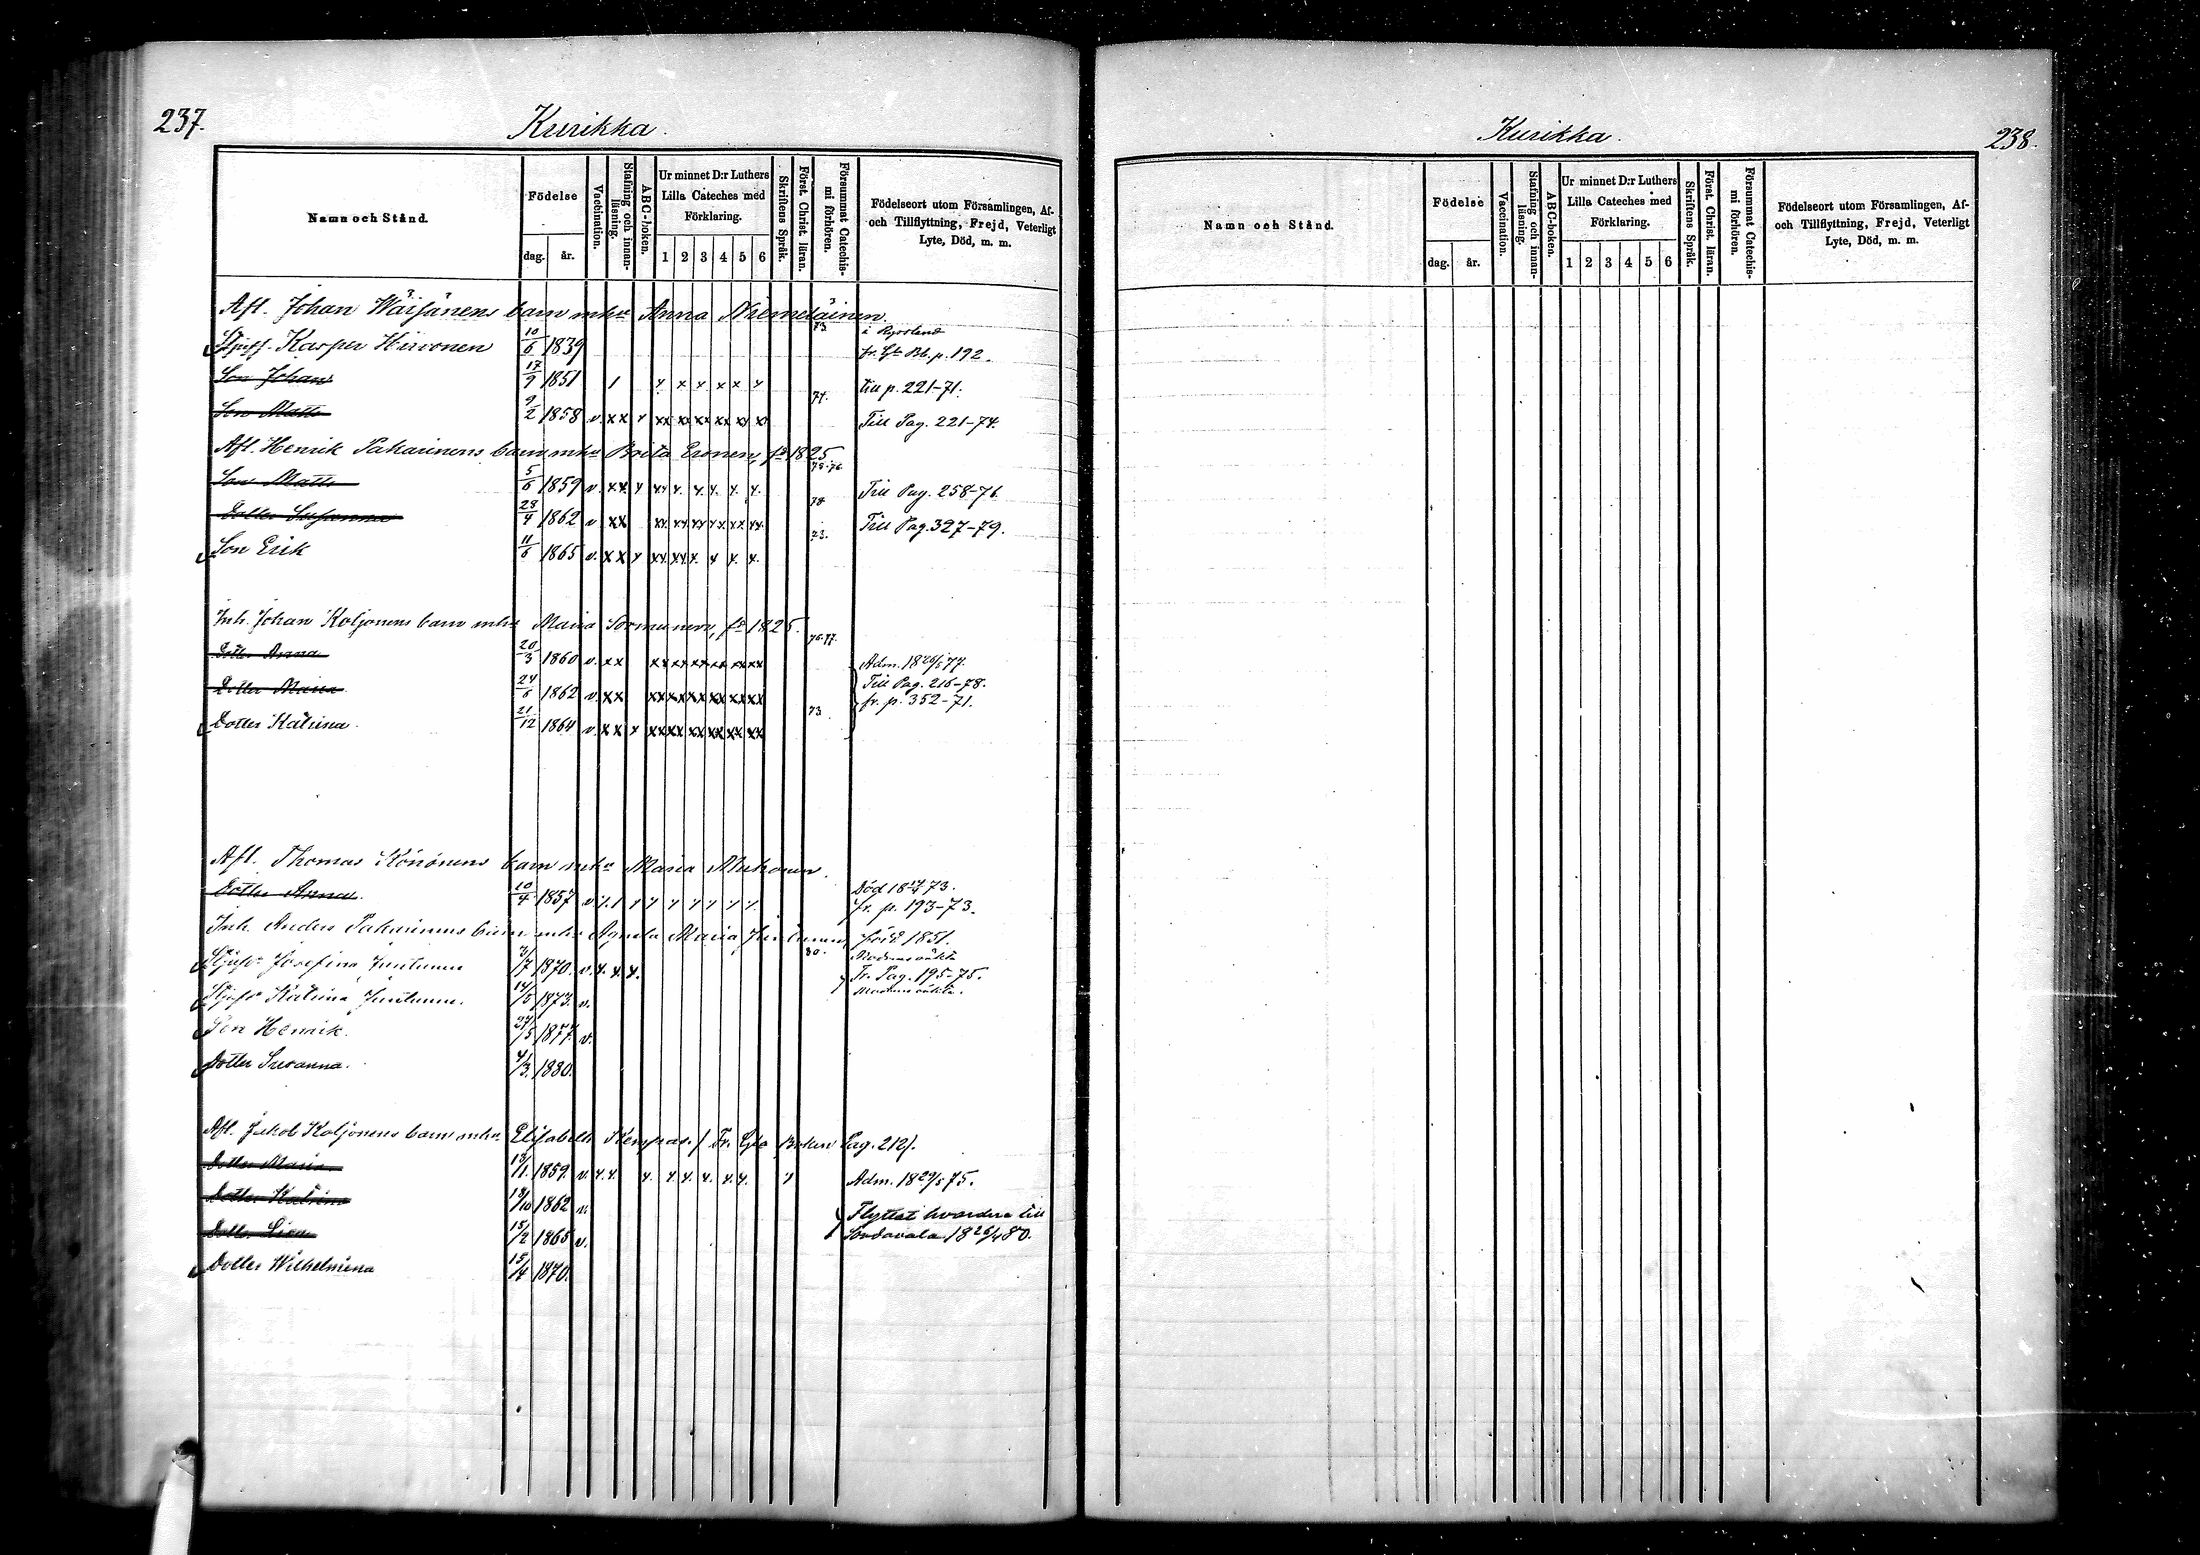 237.
Kurikka.
Namn och Stånd.
Födelse
dag. år.
Vaccination.
Stafning och innan-läsning.
ABC-boken.
Ur minnet D:r Luthers
Lilla Cateches med
Förklaring.
1 2 3 4 5 6
Skriftens Språk.
Först. Christ. läran.
Försummat Catechis-mi förhören.
Födelseort utom Församlingen, Af-
och Tillflyttning, Frejd, Veterligt
Lyte, Död, m. m.
Afl. Johan Wäisänens barn m hu Anna Niemeläinen.
73 i Ryssland
Kasper Hirvonen 10/6 1839 fr. Bb. p. 192.
Son Johan 17/9 1851 1 x x x x x x till p. 221-71.
74.
Son Matts 9/2 1858 v. xx x xx xx xx xx xx xx Till Pag. 221-74.
Afl. Henrik Pakarinens barn m hu Brita Eronen, fd 1825
Son Matts 5/6 1859 v. xx x xx x. x. x. x. x. Till Pag. 258-76.
78
Dotter Susanna 28/4 1862 v xx xx xx xx xx xx xx Till Pag. 327-79.
73.
Son Erik 11/6 1865 v. xx x xx xx x. x x. x.
Inh. Johan Koljonens barn m hu Maria Sormunen, fd 1825.
76-77.
Dotter Anna 20/3 1860 v. xx xx xx xx xx xx xx Adm. 18 26/5 77.
Till Pag. 216-78.
Dotter Maria 24/6 1862 v. xx xx xx xx xx xx xx fr. p. 352-71.
73
Dotter Katrina 21/12 1864 v. xx x xx xx xx xx xx xx
Afl. Thomas Könönens barn m hu Maria
Dotter Anna. 10/4 1857 v Död 18 73.
fr. p. 193-73.
Inh. Anders Pakarinens barn m hu Agneta Maria Juntunen, född 1851.
80.
Josefina Juntunen 3/7 1870. v. x. x. x. Modrens oäkta
Fr. Pag. 195-75.
Katrina Juntunen. 14/5 1873. v. Modrens oäkta.
Son Henrik. 27/5 1877. v.
Dotter Susanna. 4/3. 1880.
Afl. Jakob Koljonens barn m hu Elisabeth Kempas. / Fr. Boken Pag. 212/.
Dotter Maria 13/1. 1859. v. x. x. x. x. x. x. x. x. Adm. 18 29/5 75.
Dotter Katrina 18/10 1862 v. Flyttat hvardera till
Dotter Lisa 15/2 1865 v. Sordavala 18 26/4 80.
Dotter Wilhelmina 15/4 1870.
Kurikka.
238.
Namn och Stånd.
Födelse
dag. år.
Vaccination.
Stafning och innan-läsning.
ABC-boken.
Ur minnet D:r Luthers
Lilla Cateches med
Förklaring.
1 2 3 4 5 6
Skriftens Språk.
Först. Christ. läran.
Försummat Catechis-mi förhören.
Födelseort utom Församlingen, Af-
och Tillflyttning, Frejd, Veterligt
Lyte, Död, m. m.